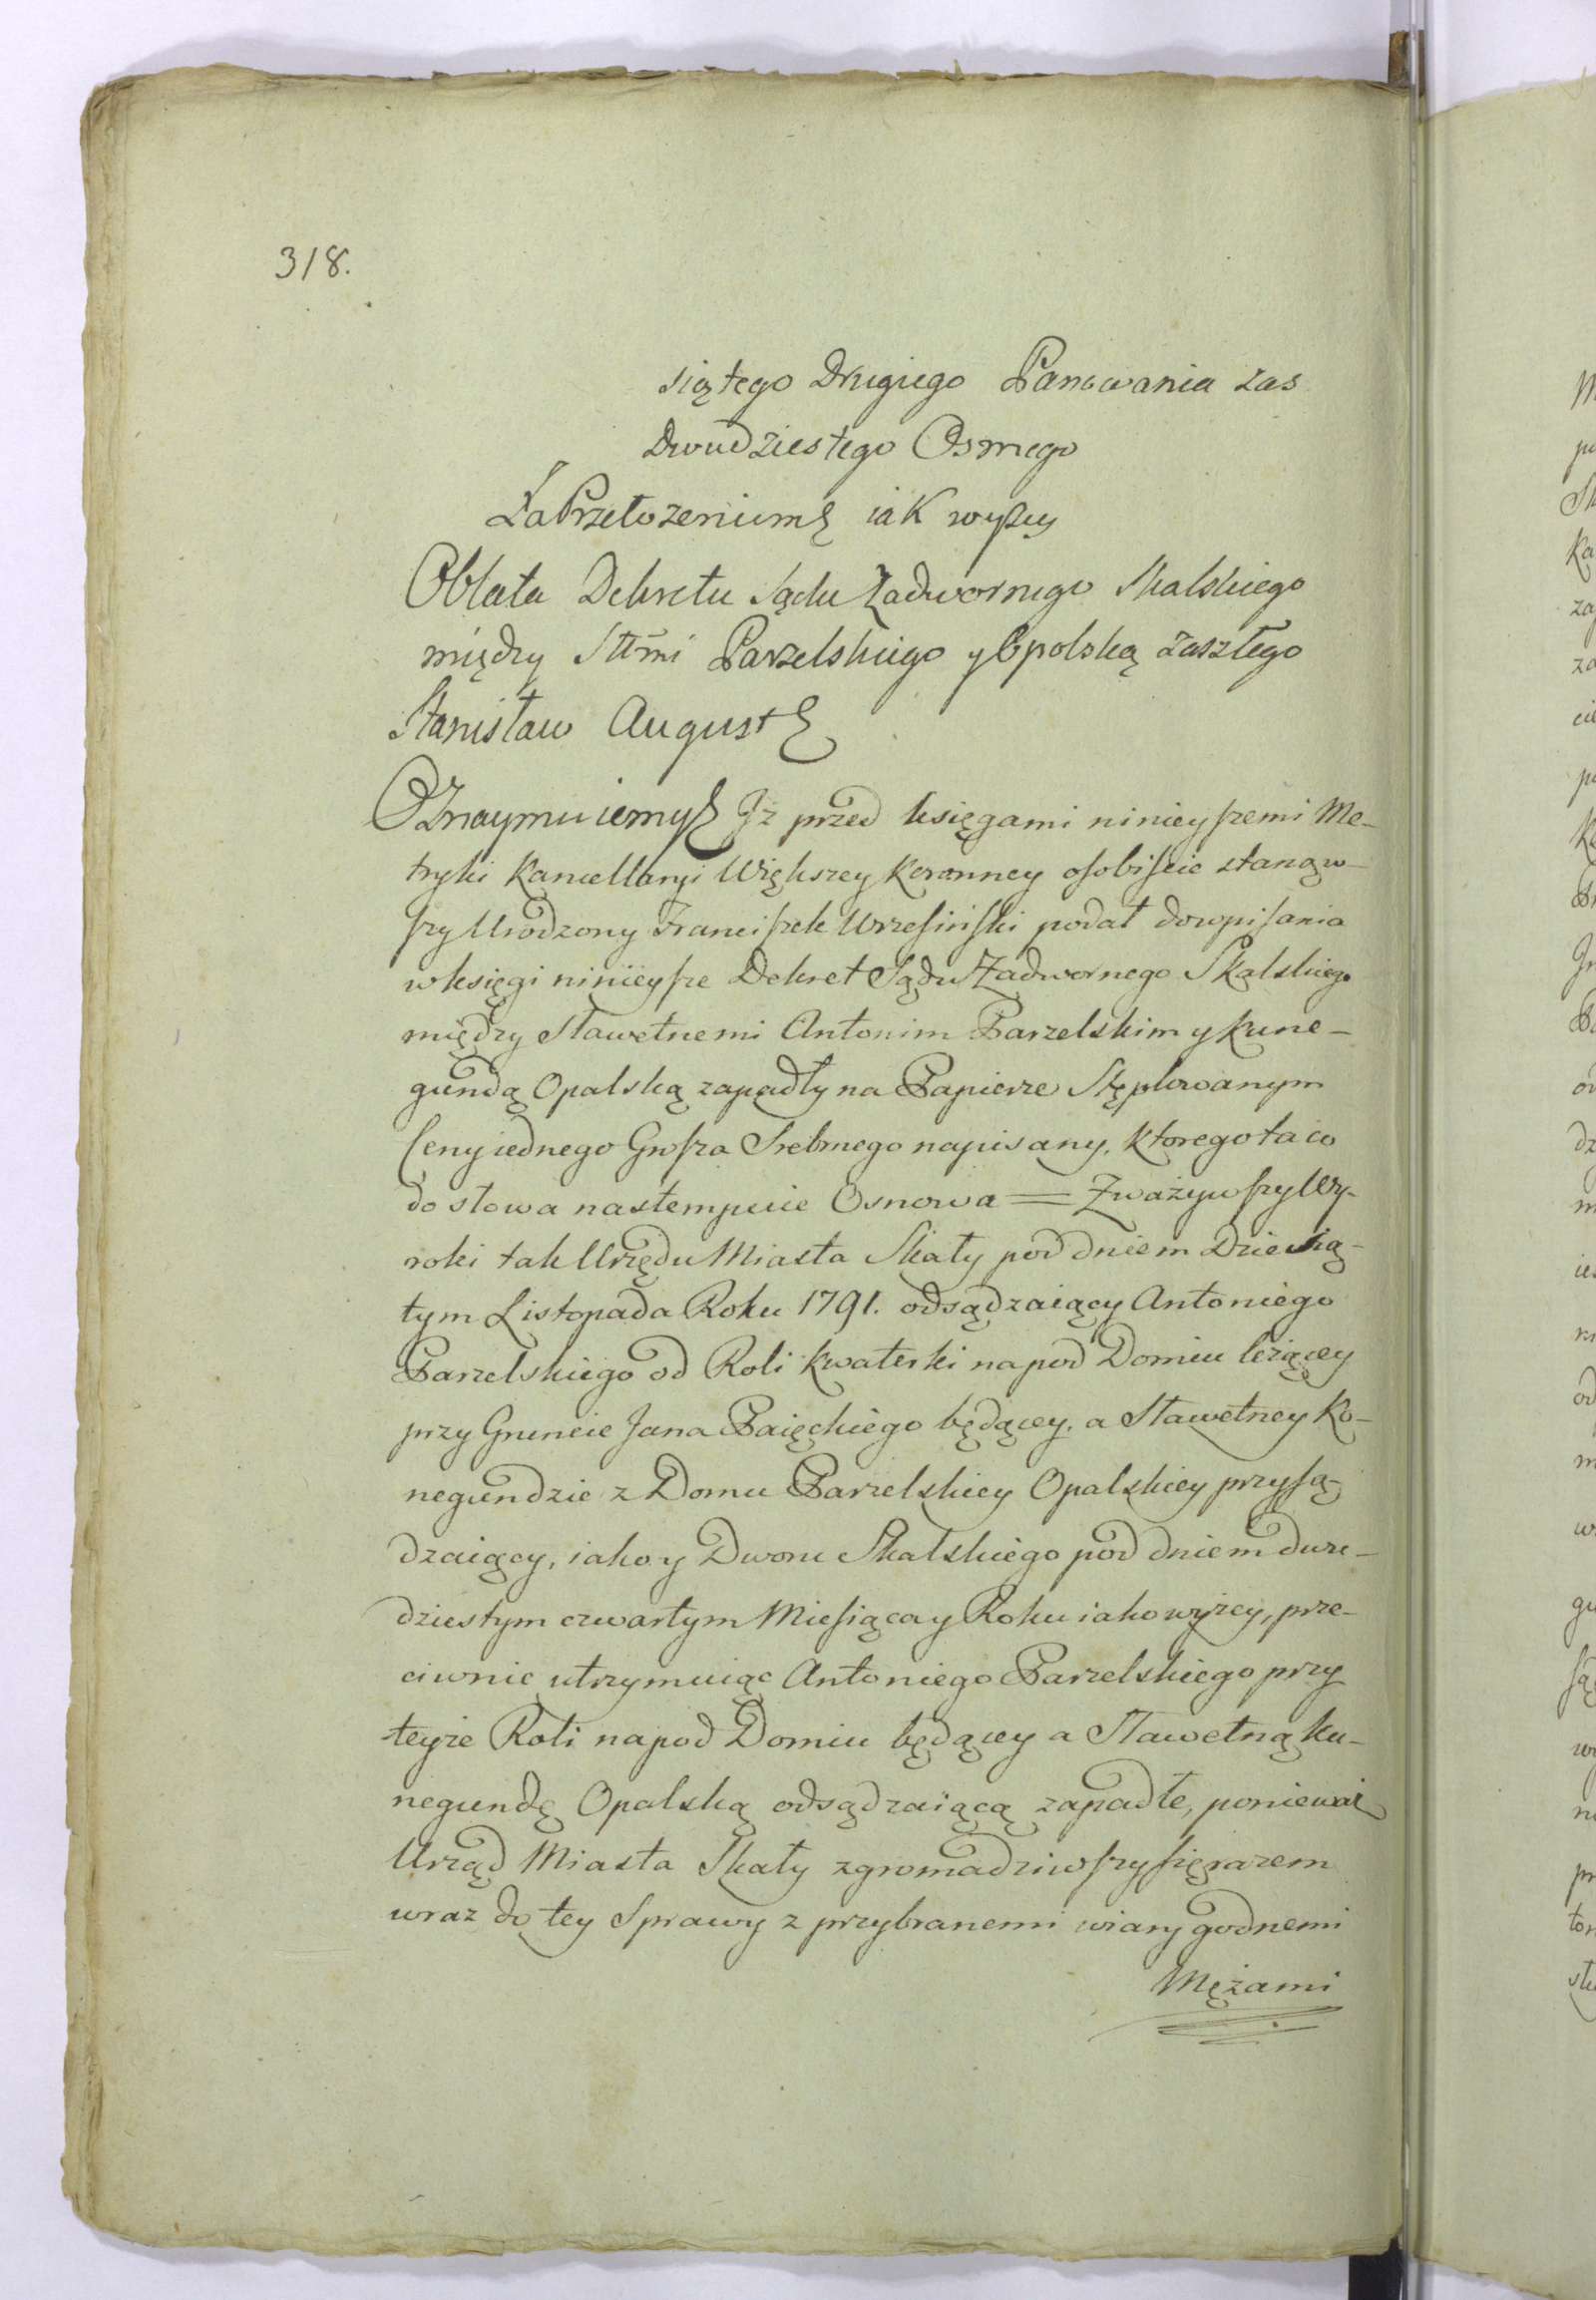 318.
siątego Drugiego Panowania zas
Dwudziestego Osmego
Za Przełozeniem& iak wyżey
Oblata Dekretu Sądu Zadwornego Skalskiego
między Sttmi Parzelskiego y Opolską zaszłego
Stanisław August&
Oznaymuiemy& Jż przed księgami ninieyszemi Me-
tryki Kancellaryi Większey Koronney osobiscie stanąw-
szy Urodzony Franciszek Wrzesiński podał do wpisania
w księgi ninieysze Dekret Sądu Zadwornego Skalskiego
między Sławetnemi Antonim Parzelskim y Kune-
gundą Opalską zapadły na Papierze Stęplowanym
Ceny iednego Grosza Srebrnego napisany, ktorego ta co
do słowa nastempuie Osnowa = Zważywszy Wy-
roki tak Urzędu Miasta Skały pod dniem Dziesią-
tym Listopada Roku 1791. odsądzaiący Antoniego
Parzelskiego od Roli Kwaterki na pod Domiu leżącey
przy Gruncie Jana Paięckiego będącey, a Sławetney Ko-
negundzie z Domu Parzelskiey Opalskiey przysą-
dzaiący, iako y Dworu Skalskiego pod dniem dwu-
dziestym czwartym Miesiąca y Roku iako wyżey, prze-
ciwnie utrzymuiąc Antoniego Parzelskiego przy
teyże Roli na pod Domiu będącey a Sławetną Ku-
negundę Opalską odsądzaiącą zapadłe, ponieważ
Urząd Miasta Skały zgromadziwszy się razem
wraz do tey Sprawy z przybranemi wiary godnemi
Mężami